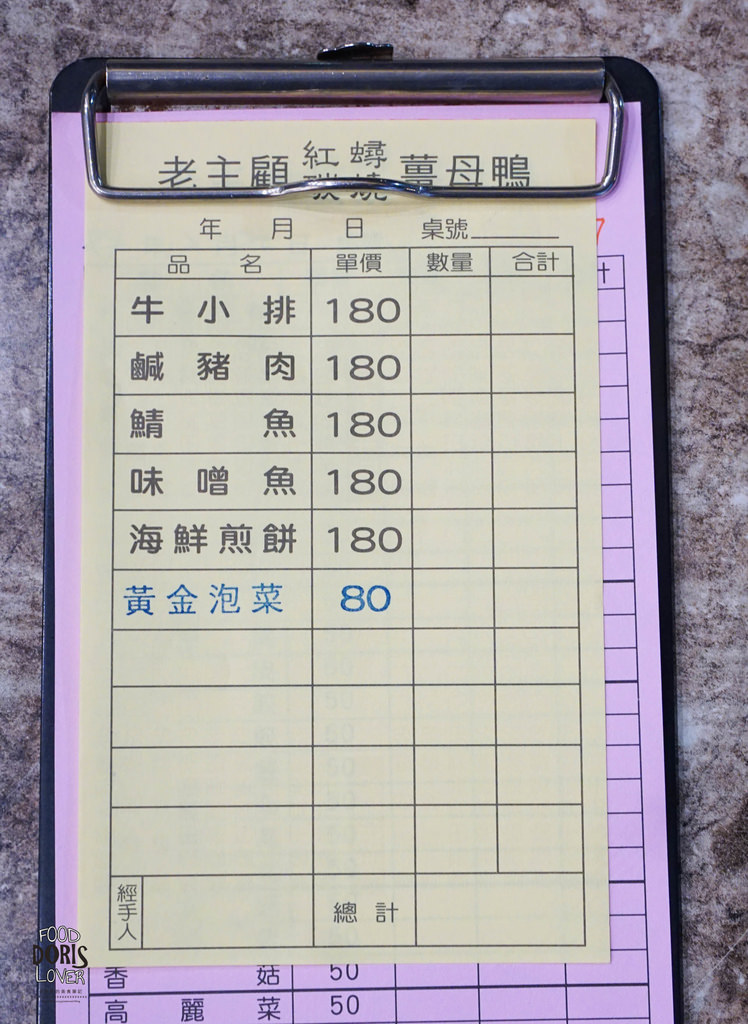 老主顧 紅蟳 碳燒 薑母鴨
年 月 日 桌號
品名 單價 數量 合計
牛小排 180
鹹豬肉 180
鯖魚 180
味噌魚 180
海鮮煎餅 180
黃金泡菜 80
經手人 總計
計
香菇 50
高麗菜 50
FOOD
DORIS
LOVER